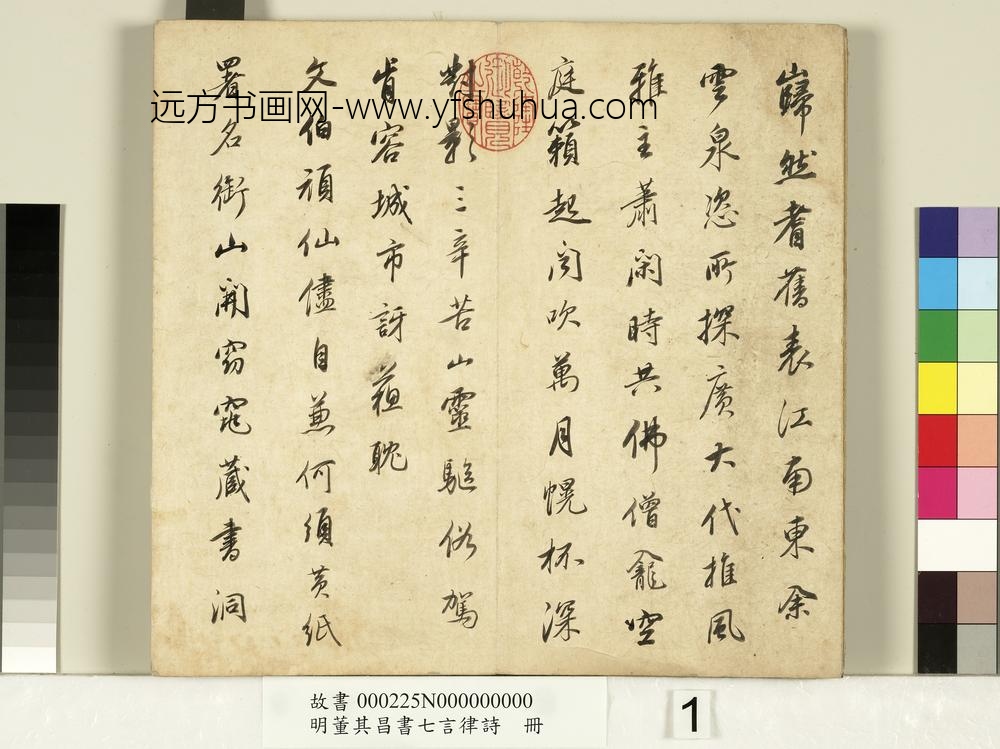 巋然耆舊表江南東佘
雲泉恣所探廣大代推風
雅主蕭閑時共佛僧龕空
庭籟起聞吹萬月幌杯深
對影三辛苦山靈驅俗駕
肯容城市訝耽
文伯頑仙儘自兼何須黃紙
署名銜山開窈窕藏書洞
远方书画网-www.yfshuhua.com
故書 000225N000000000
明董其昌書七言律詩 冊
1